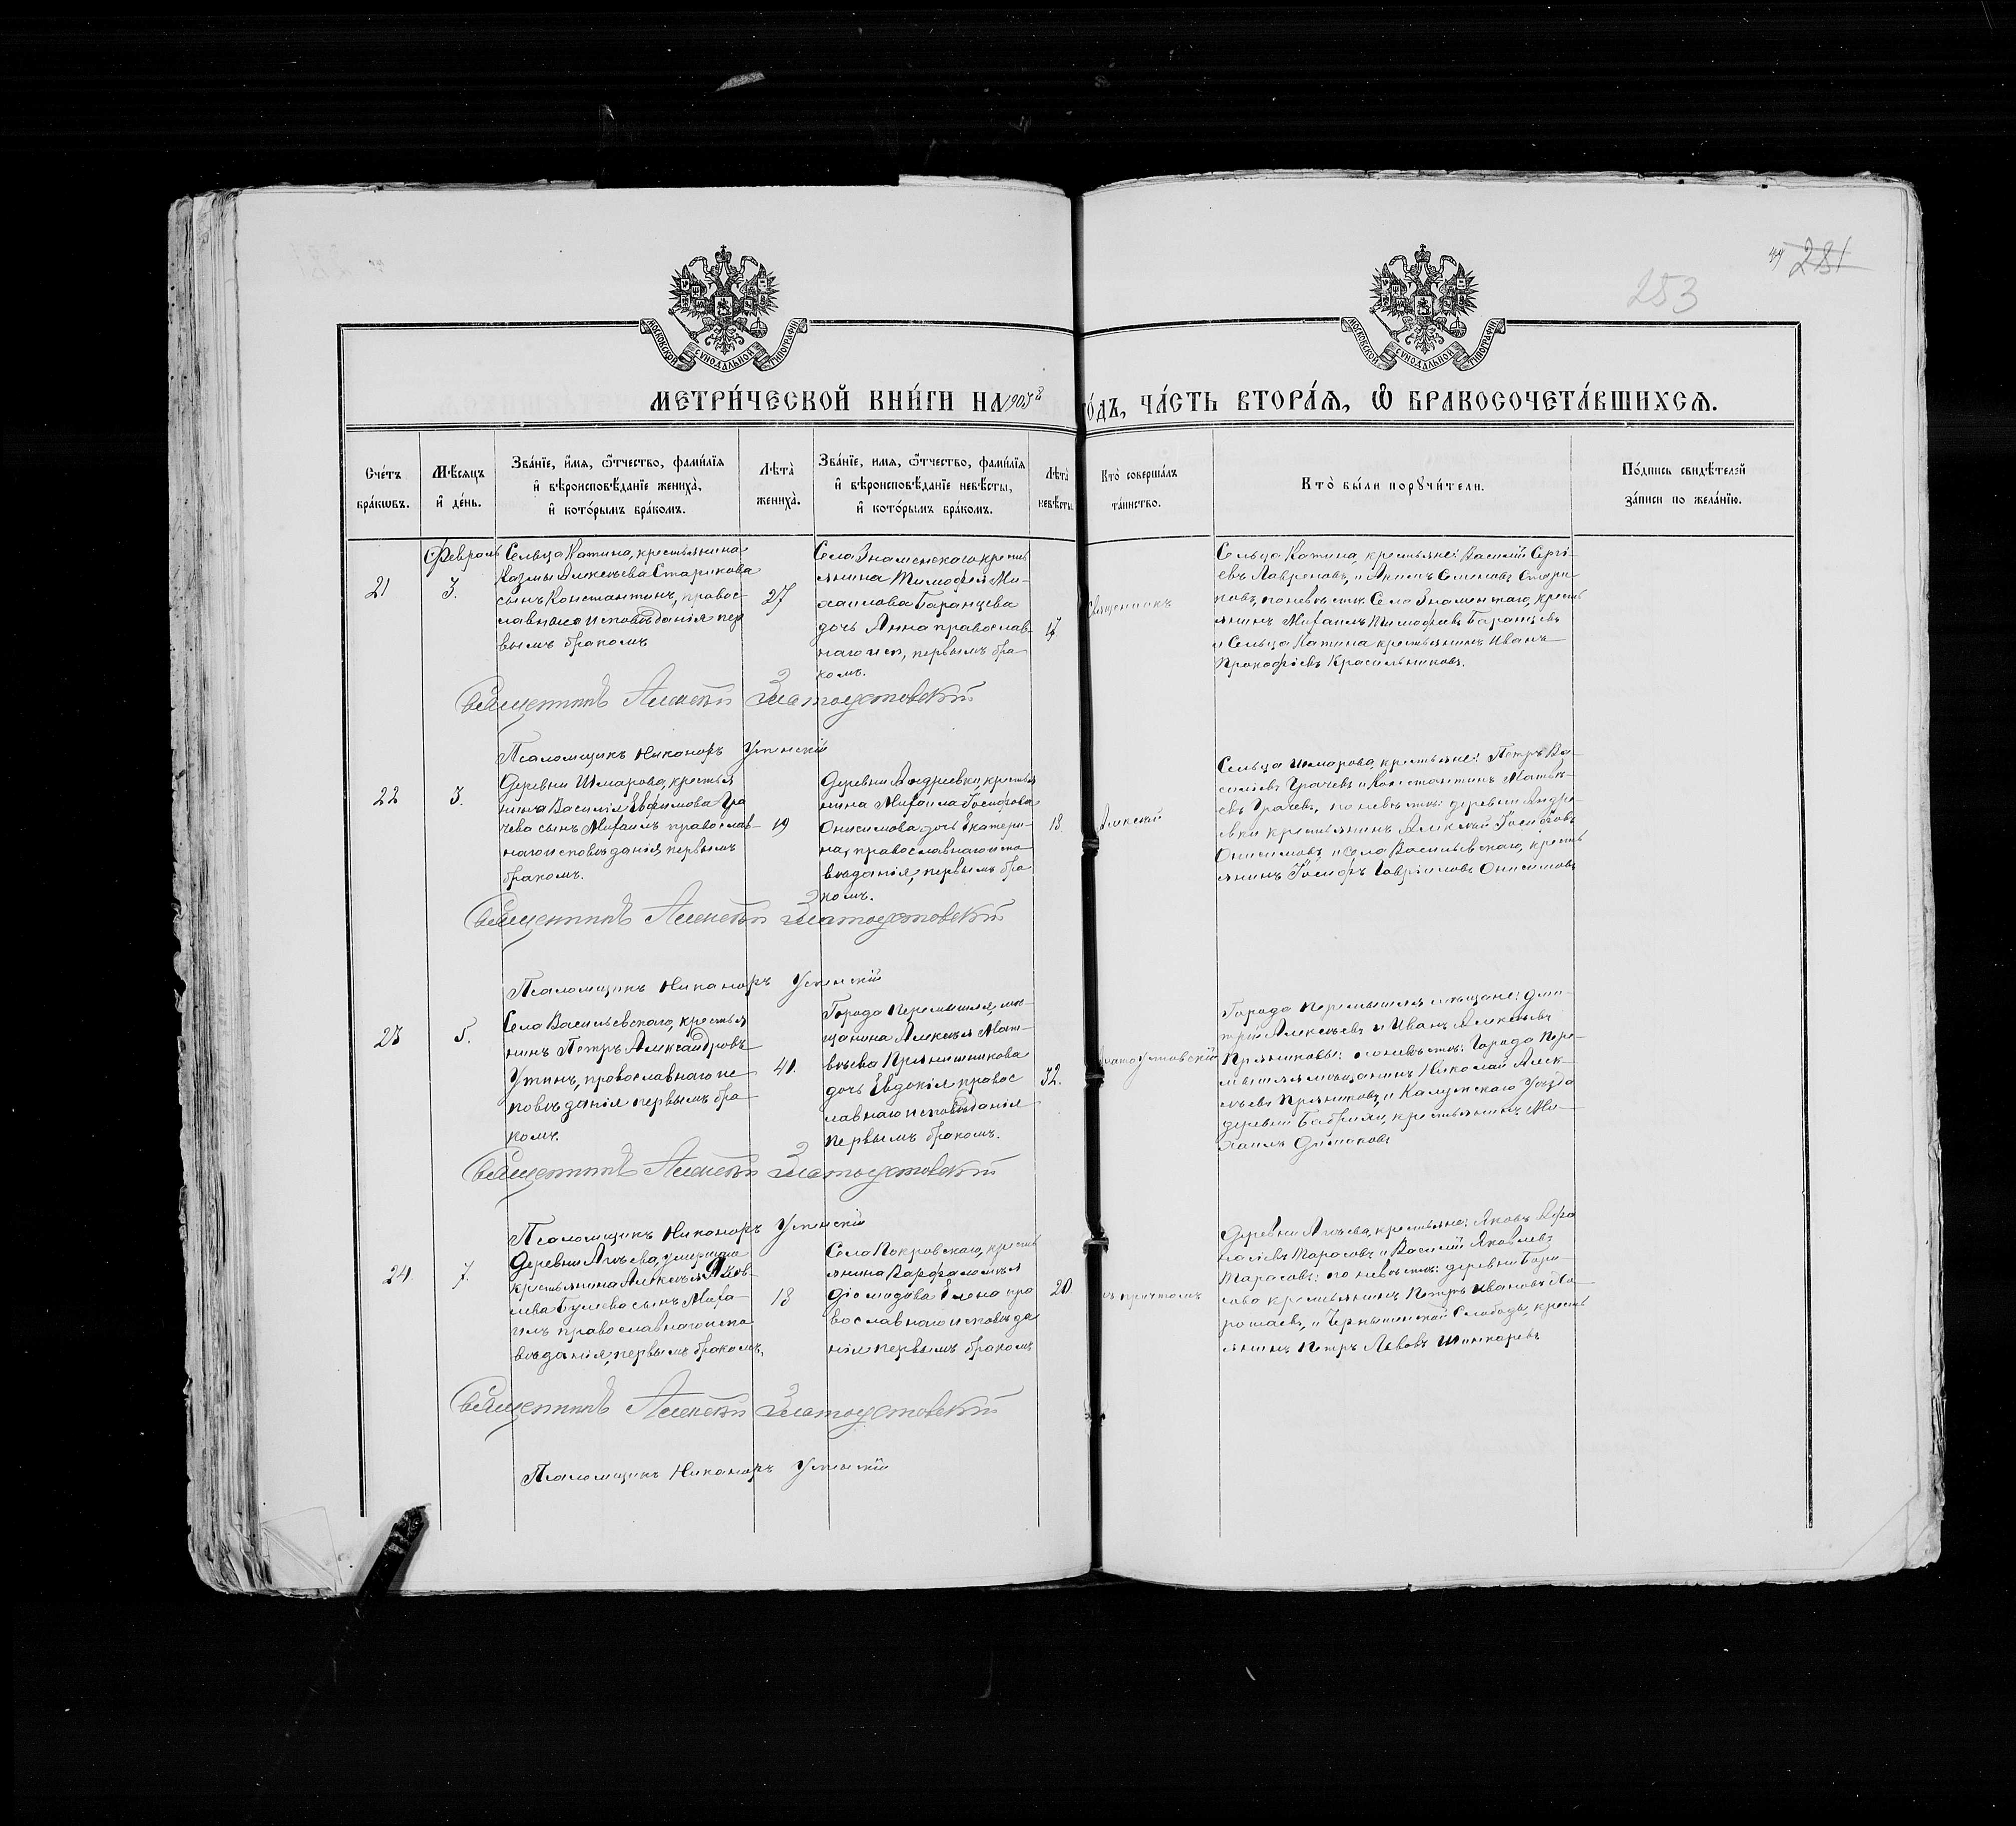 44 281
253
МОСКОВСКОЙ СУНОДАЛЬНОЙ ТИПОГРАФІИ
МОСКОВСКОЙ СУНОДАЛЬНОЙ ТИПОГРАФІИ
МЕТРИ́ЧЕСКОЙ КНИ́ГИ НА 1903 й ГО́ДЪ, ЧА́СТЬ ВТОРА́Ѧ, Ѽ БРАКОСОЧЕТА́ВШИХСѦ.
Сче́тъ
бра́кѡвъ.
Мѣ́сѧцъ
и҆ де́нь.
Зва́нїе, и҆́мѧ, ѻ҆́тчество, фами́лїѧ
и҆ вѣроисповѣ́данїе жениха̀,
и҆ кото́рымъ бра́комъ.
Лѣта̀
жениха̀.
Зва́нїе, имѧ, ѻ҆́тчество, фами́лїѧ
и҆ вѣроисповѣ́данїе невѣ́сты,
и҆ кото́рымъ бра́комъ.
Лѣта̀
невѣ́сты.
Кто̀ соверша́лъ
та́инство.
Кто̀ бы́ли порꙋчи́тели.
По́дпись свидѣ́телей
за́писи по жела́нїю.
21
Февраль
3.
Сельца Катина, крестьянина
Казмы Алексѣева Старикова
сынъ Константинъ, правос-
лавнаго исповѣданія пер
вымъ бракомъ
27
Села Знаменскаго, кресть
янина Тимофея Ми-
хаилова Баранцева
дочь Анна православ-
наго исп, первымъ бра
комъ.
17
Священникъ
Сельца Катина, крестьяне: Василій Сергі-
евъ Лавреновъ, и Акимъ Семеновъ Стари
ковъ, по невѣстѣ: Села Знаменскаго, кресть
янинъ Михаилъ Тимофеевъ Баранцевъ
и Сельца Катина крестьянинъ Иванъ
Прокофіевъ Красильниковъ.
Священникъ Алексѣй Златоустовскій
Псаломщикъ Никаноръ Успенскій
22
3.
Деревни Шмарова, крестья
нина Василія Евфимова Гра
чева сынъ Михаилъ православ-
наго исповѣданія, первымъ
бракомъ.
19
Деревни Андреевки, крестья
нина Михаила Іосифова
Онисимова дочь Екатери-
на, православнаго испо
вѣданія, первымъ бра
комъ.
18
Алексѣй
Сельца Шмарова, крестьяне: Петръ Ва-
силіевъ Грачевъ и Константинъ Матвѣ-
евъ Грачевъ, по невѣстѣ: деревни Андре
евки крестьянинъ Алексѣй Іосифовъ
Онисимовъ, и Села Васильевскаго, кресть
янинъ Іосифъ Гавріиловъ Онисимовъ
Священникъ Алексѣй Златоустовскій
Псаломщикъ Никаноръ Успенскій
23
5.
Села Васильевскаго, крестья
нинъ Петръ Александровъ
Утинъ, православнаго ис
повѣданія первымъ бра
комъ.
41.
Города Перемышля, мѣ
щанина Алексѣя Мат-
вѣева Прянишникова
дочь Евдокія правос
лавнаго исповѣданія
первымъ бракомъ.
32.
Златоустовскій
Города Перемышля мѣщане: Дми-
трій Алексѣевъ и Иванъ Алексѣевъ
Пряниковы: по невѣстѣ: Города Пере-
мышля мѣщанинъ Николай Алек-
сѣевъ Пряниковъ, и Калужскаго Уѣзда
деревни Бабрили, крестьянинъ Ми-
хаилъ Симаковъ
Священникъ Алексѣй Златоустовскій
Псаломщикъ Никаноръ Успенскій
24
7.
Деревни умершаго
крестьянина Алексѣя Яков-
лева сынъ Миха-
илъ православнаго испо
вѣданія, первымъ бракомъ,
18
Села Покровскаго, кресть
янина Варфаломѣя
Діомидова Елена пра
вославнаго исповѣда
нія первымъ бракомъ
20
съ причтомъ
крестьяне: Яковъ Афа
насіевъ Тарасовъ и Василій Яковлевъ
Тарасовъ; по невѣстѣ: деревни Бори-
сова крестьянинъ Петръ Ивановъ Хо-
рошаевъ, и Чернышенской Слободы, кресть
янинъ Петръ Львовъ Шинкаревъ
Священникъ Алексѣй Златоустовскій
Псаломщикъ Никаноръ Успенскій